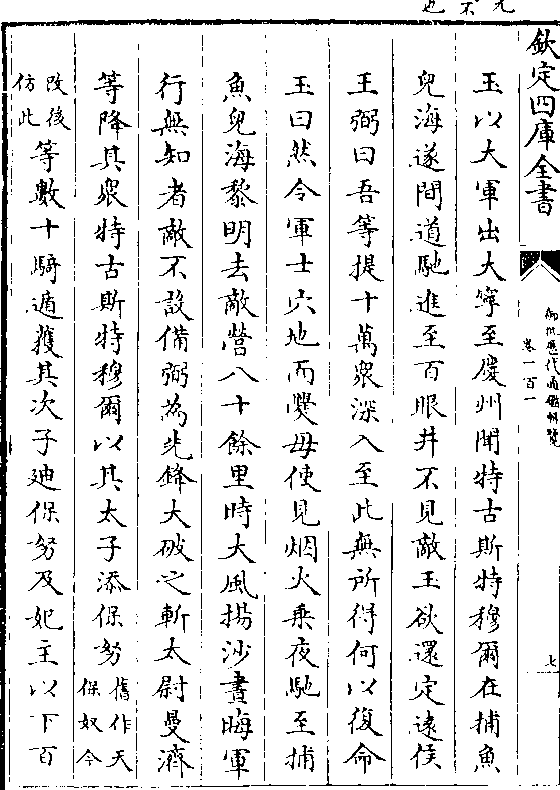 欽定四庫全書
御批歷代通鑑輯覽
卷一百一
七
玉以大軍出大寧至慶州聞特古斯特穆爾在捕魚
兒海遂間道馳進至百眼井不見敵玉欲還定遠侯
王弼曰吾等提十萬衆深入至此無所得何以復命
玉曰然令軍士穴地而爨毋使見烟火乘夜馳至捕
魚兒海黎明去敵營八十餘里時大風揚沙晝晦軍
行無知者敵不設備弼為先鋒大破之斬太尉曼濟
等降其衆特古斯特穆爾以其太子添保努
舊作天
保奴今
改後
仿此
等數十騎遁獲其次子廸保努及妃主以下百